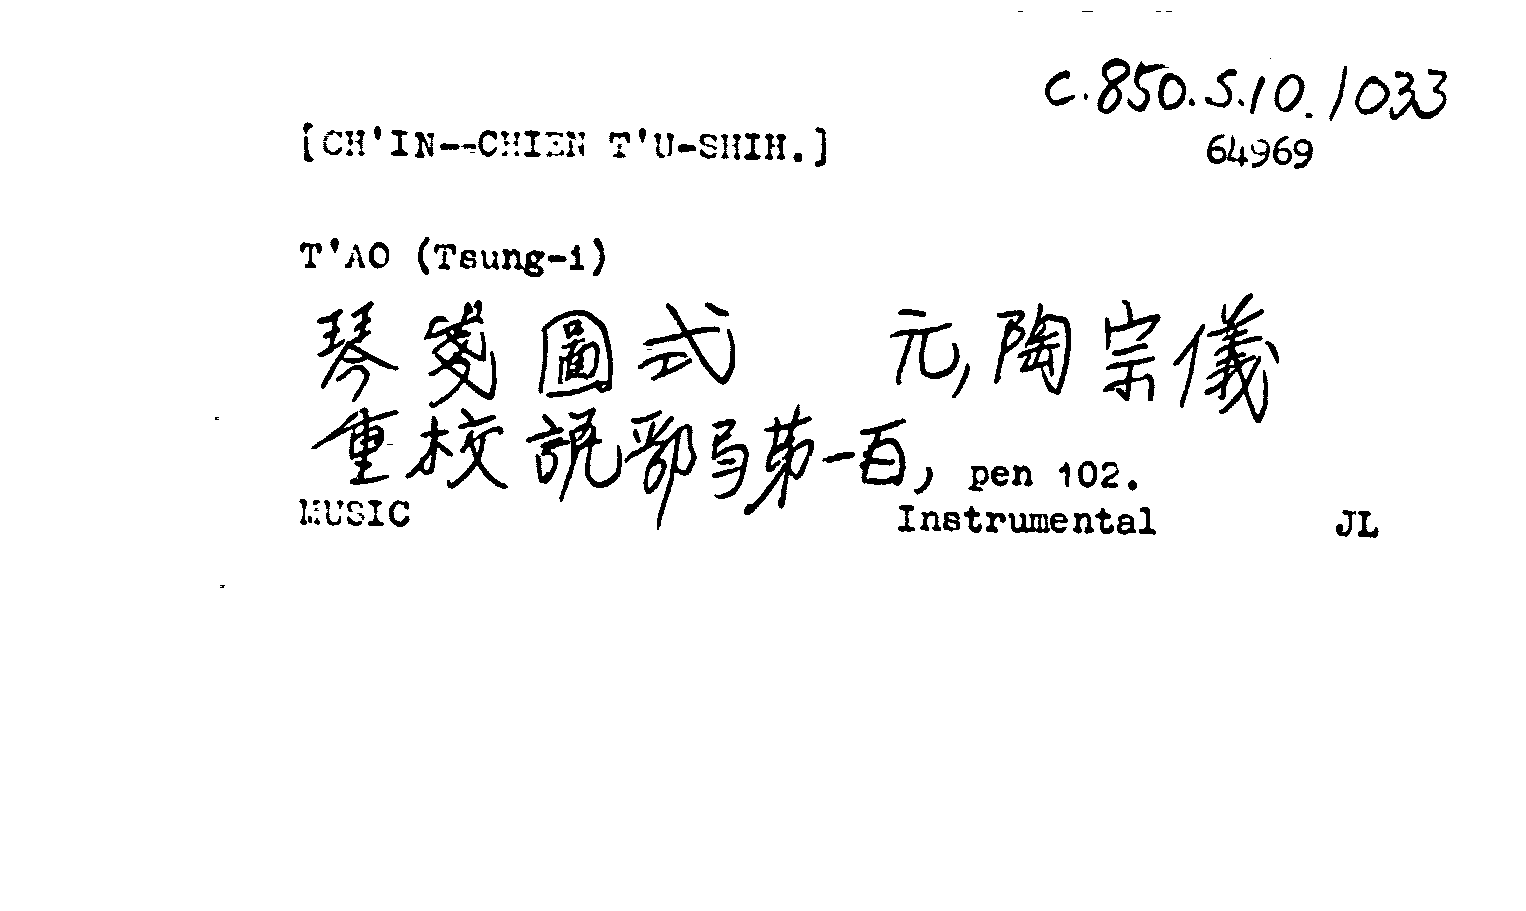 C.850.S.10./033
[CH'IN--CHIEN T'U-SHIH.]
64969
T'AO (Tsung-i)
琴箋圖式 元,陶宗儀
重校說郛弓第一百, pen 102.
MUSIC Instrumental JL